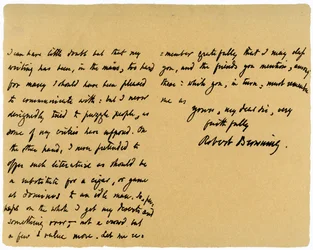 I can have little doubt but that my
writing has been, in the main, too hard
for many I should have been pleased
to communicate with: but I never
designedly tried to puzzle people, as
some of my critics have supposed. On
the other hand, I never pretended to
offer such literature as should be
a substitute for a cigar, or game
at dominos to an idle man. So, per-
haps on the whole I get my deserts and
something over - not a crowd but
a few I value more. Let me re-
:member gratefully that I may class
you, and the friends you mention, among
these: while you, in turn, must remember
me as
yours, my dear sir, very
faithfully
Robert Browning.